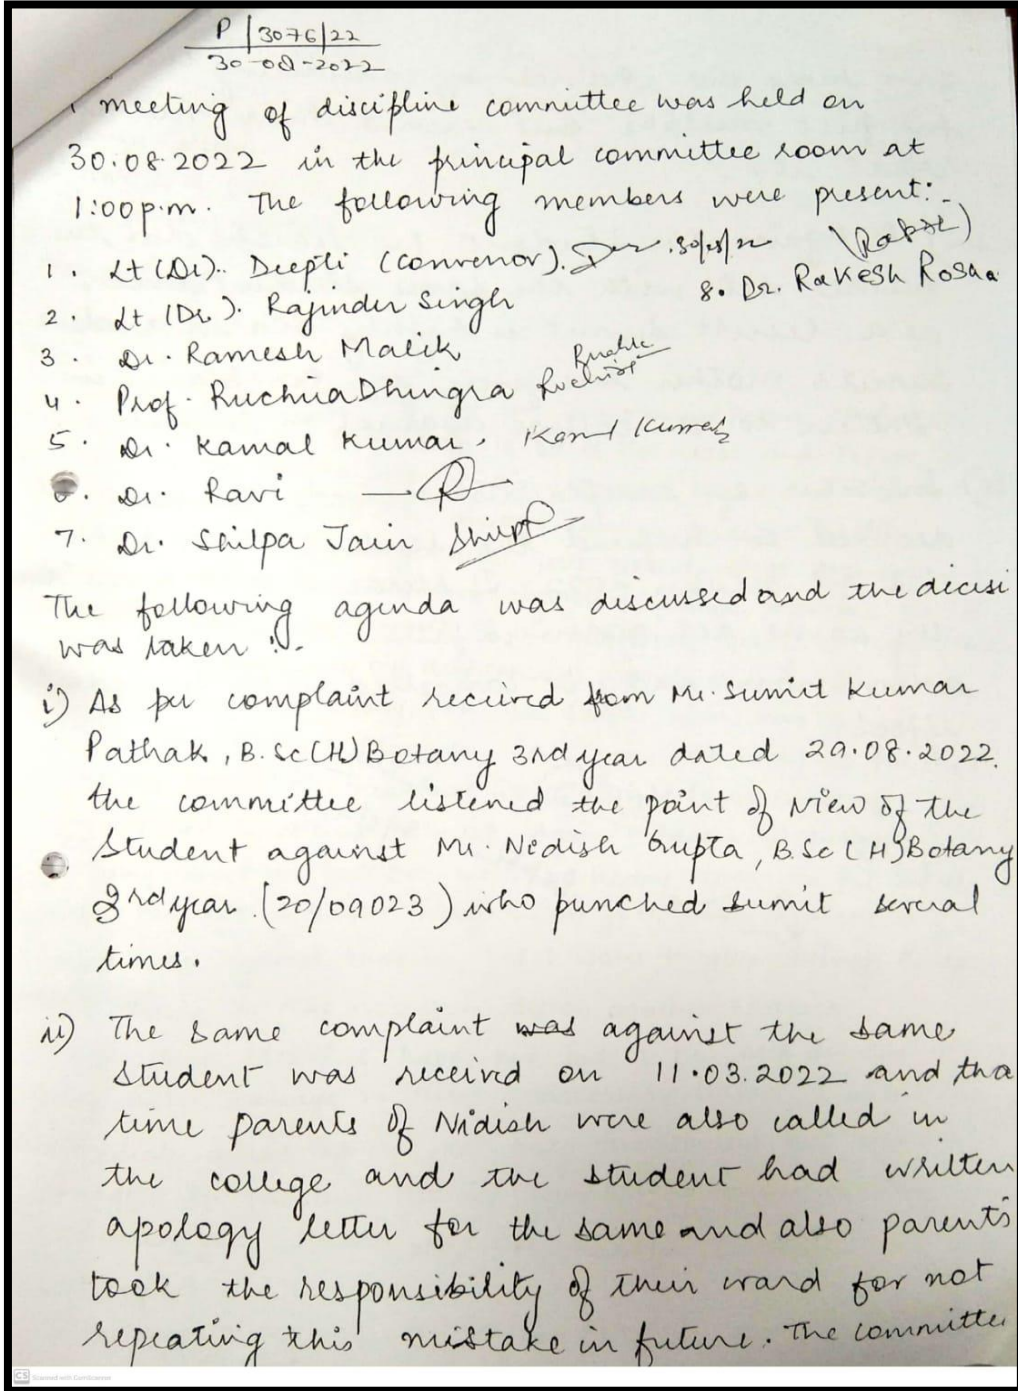 P/3076/22
30-08-2022
meeting of discipline committee was held on
30.08.2022 in the principal committee room at
1:00p.m. The following members were present:-
1. Lt (Dr). Deepti (convenor). 30/08/22
8. Dr. Rakesh
2. Lt (Dr.). Rajinder Singh
3. Dr. Ramesh Malik
4. Prof. Ruchira Dhingra
5. Dr. Kamal Kumar.
6. Dr. Ravi
7. Dr. Shilpa Jain
The following agenda was discussed and the decisi
was taken :-
i) As per complaint received from Mr. Sumit Kumar
Pathak, B.Sc(H) Botany 3rd year dated 29.08.2022.
the committee listened the point of view of the
student against Mr. Nedish Gupta, B.Sc(H) Botany
3rd year. (20/09023) who punched Sumit several
times.
ii) The same complaint was against the same
student was received on 11.03.2022 and tha
time parents of Nidish were also called in
the college and the student had written
apology letter for the same and also parents
took the responsibility of their ward for not
repeating this mistake in future. The committee
CS Scanned with CamScanner